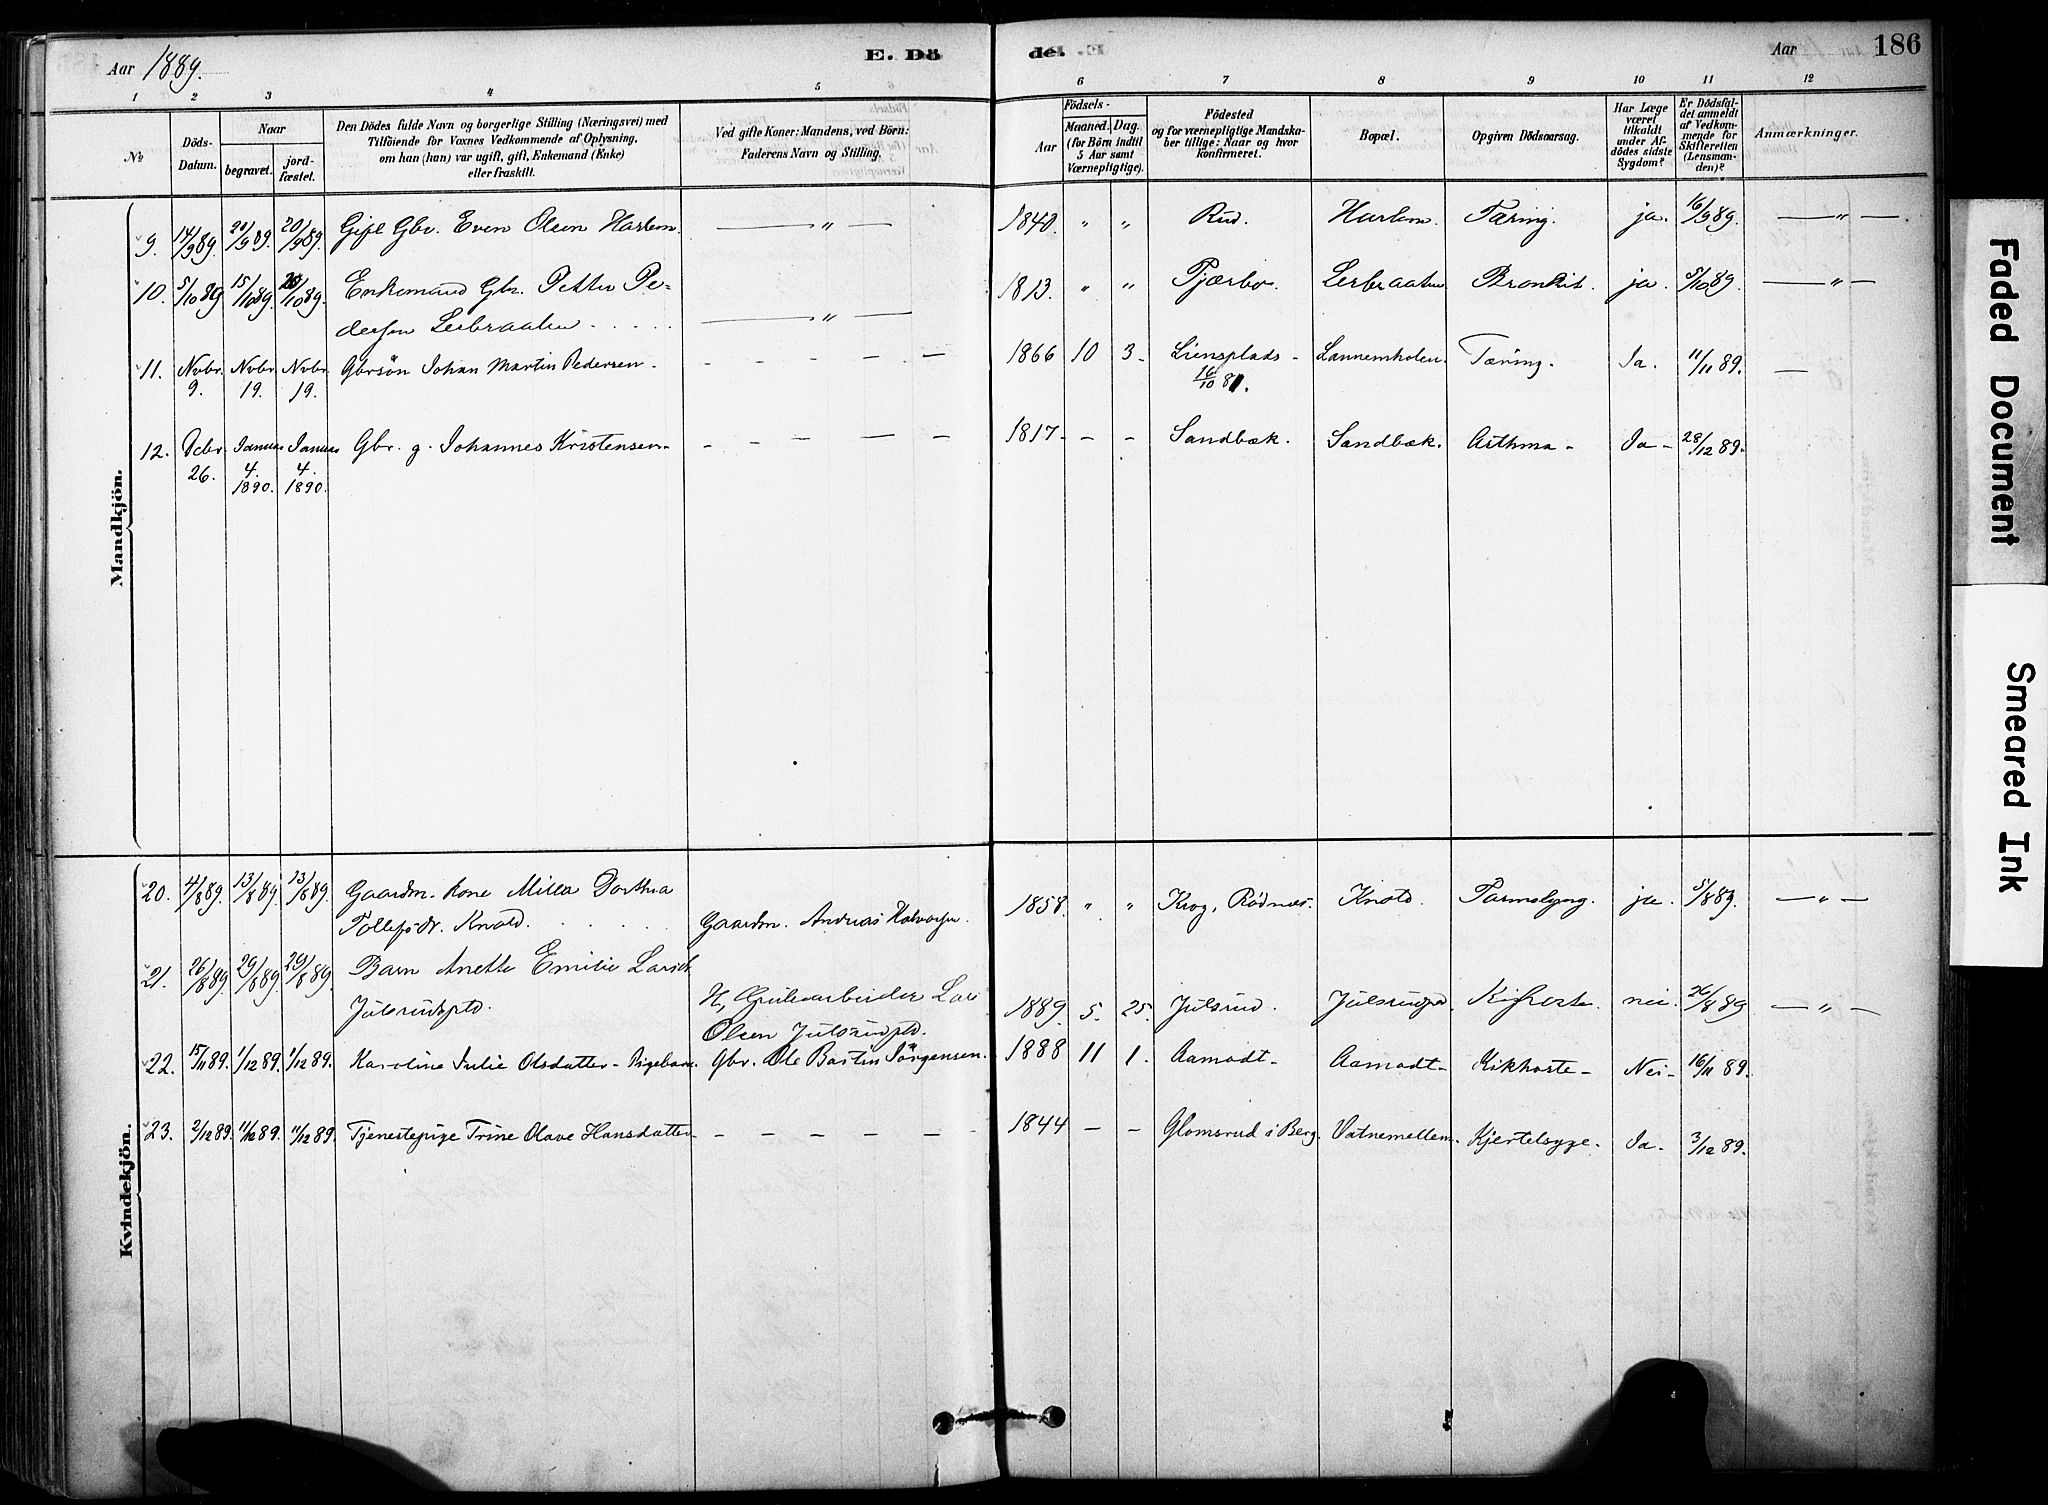 Aar 1889.
E. Dö
de.
Aar
186
1 2 3 4 5 6 7 8 9 10 11 12
№
Döds-
Datum.
Naar
begravet.
jord-
fæstet.
Den Dödes fulde Navn og borgerlige Stilling (Næringsvei) med
Tilföiende for Voxnes Vedkommende af Oplysning,
om han (hun) var ugift, gift, Enkemand (Enke)
eller fraskilt.
Ved gifte Koner: Mandens, ved Börn:
Faderens Navn og Stilling.
Födsels-
Aar
Maaned.
Dag.
(for Börn indtil
5 Aar samt
Værnepligtige).
Födested
og for værnepligtige Mandska-
ber tillige: Naar og hvor
konfirmeret.
Bopæl.
Opgiven Dödsaarsag.
Har Læge
været
tilkaldt
under Af-
dödes sidste
Sygdom?
Er Dödsfal-
det anmeldt
af Vedkom-
mende for
Skifteretten
(Lensman-
den)?
Anmærkninger.
Mandkjön.
9. 14/9 89. 20/9 89. 20/9 89. Gift Gbr. Even Olsen Harlem. — „ — 1840. „ „ Rud. Harlem. Tæring. ja. 16/9 89. — „ —
10. 5/10 89 15/10 89. /10 89. Enkemand Gbr. Petter Pe-
dersen Lerbraaten — „ — 1813. „ „ Tjærbo. Lerbraaten Bronkit. ja. 5/10 89. — „ —
11. Novbr. 9. Novbr. 19. Novbr. 19. Gbrsön Johan Martin Pedersen. - - - - - 1866 10 3. Liensplads - Lannemholen. Tæring. Ja. 11/11 89. —
16/10 81.
12. Decbr. 26. Januar 4. 1890. Januar 4. 1890. Gbr. g. Johannes Kristensen - - - - - 1817 - - - Sandbæk. Sandbæk. Asthma - Ja - 28/12 89.
Kvindekjön.
20. 4/8 89. 13/8 89. 13/8 89. Gaardm. Kone Milla Dorthea
Tollefsdr. Knold. Gaardm. Andreas Halvorsen. 1858. „ „ Krog, Rödnæs. Knold. Tarmslyng. ja. 5/8 89. — „ —
21. 26/8 89. 29/8 89. 29/8 89. Barn Anette Emilie Larsdt.
Julsrudpld. Lars
Olsen Julsrudpld. 1889. 5. 25. Julsrud. Julsrudpld Kighoste. nei. 26/8 89 — „ —
22. 15/11 89. 1/12 89. 1/12 89. Karoline Julie Olsdatter - Pigebarn. Gbr. Ole Bastin Jörgensen. 1888 11 1. Aamodt - Aamodt - Kikhoste - Nei - 16/11 89.
23. 2/12 89. 11/12 89. 11/12 89. Tjenestepige Trine Olave Hansdatter - - - - - - 1844 - - Glomsrud i Berg. Vatnemellem. Kjertelsyge. Ja. 3/12 89.
Faded Document
Smeared Ink